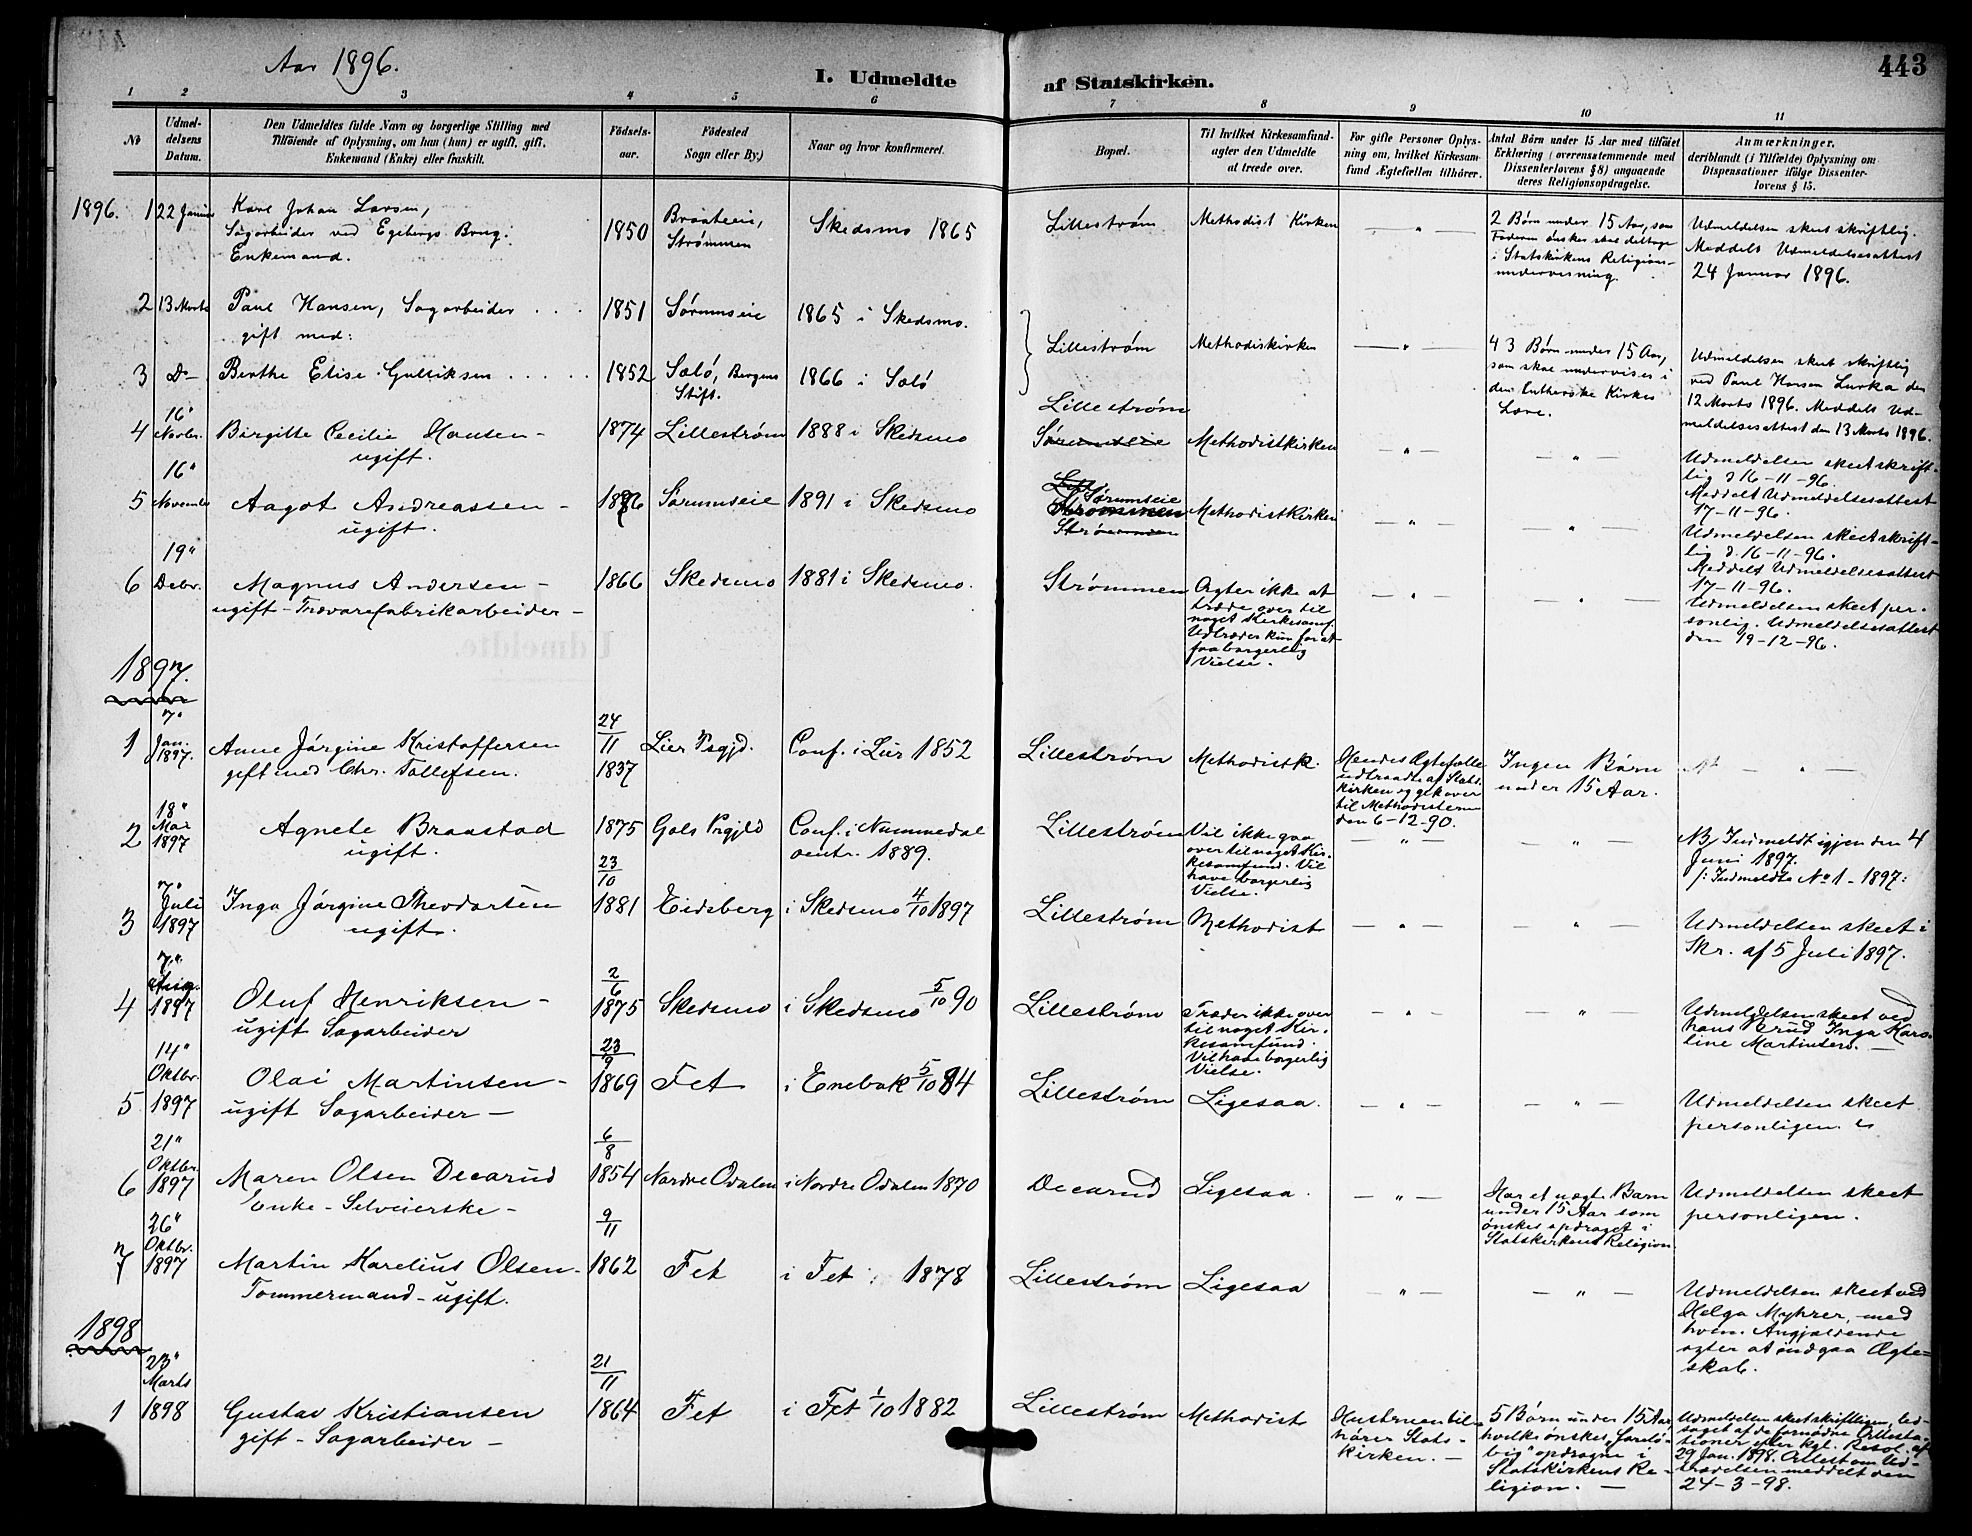 Aar 1896.
I. Udmeldte af Statskirken.
443
1 2 3 4 5 6 7 8 9 10 11
No
Udmel-
delsens
Datum.
Den Udmeldtes fulde Navn og borgerlige Stilling med
Tilföiende af Oplysning, om han (hun) er ugift, gift,
Enkemand (Enke) eller fraskilt.
Födsels-
aar.
Födested
Sogn eller By.)
Naar og hvor konfirmeret.
Bopæl.
Til hvilket Kirkesamfund
agter den Udmeldte
at træde over.
For gifte Personer Oplys-
ning om, hvilket Kirkesam-
fund Ægtefællen tilhörer.
Antal Börn under 15 Aar med tilföiet
Erklæring (overensstemmende med
Dissenterlovens § 8) angaaende
deres Religionsopdragelse.
Anmærkninger.
deriblandt (i Tilfælde) Oplysning om
Dispensationer ifölge Dissenter-
lovens § 15.
1896. 1 22 Januar
Karl Johan Larsen,
Sagarbeider ved Egebergs Brug.
Enkemand.
1850
Braateeie,
Strømmen
Skedsmo 1865
Lillestrøm
Methodist Kirken
— " —
2 Børn under 15 Aar, som
Faderen ønsker skal deltage
i Statskirkens Religions-
undervisning.
Udmeldelsen skeet skriftlig.
Meddelt Udmeldelsesattest
24 Januar 1896.
2 13 Marts
Paul Hansen, Sagarbeider . . .
gift med:
1851
Sørumseie
1865 i Skedsmo.
Lillestrøm
Methodiskirken
— " —
4 3 Børn under 15 Aar,
som skal undervises i
den lutherske Kirkes
Lære.
Udmeldelsen skeet skriftlig
ved Paul Hansen Lurka den
12 Marts 1896. Meddelt Ud-
meldelsesattest den 13 Marts 1896.
3 Do —
Berthe Elise Gulliksen . . . . .
1852
Solö, Bergens
Stift.
1866 i Solö
4
16"
Novbr.
Birgitte Cecilie Hansen —
ugift.
1874
Lillestrøm
1888 i Skedsmo
Lillestrøm
Sørumseie
Methodistkirken
— " —
— " —
Udmeldelsen skeet skrift-
lig d 16-11-96.
Meddelt Udmeldelsesattest
17-11-96.
5
16"
November
Aagot Andreassen —
ugift.
Sørumseie
1891 i Skedsmo
Sørumseie
Strømmen
Strømmen
Methodistkirken
— " —
— " —
Udmeldelsen skeet skrift-
lig d. 16-11-96.
Meddelt Udmeldelsesattest
17-11-96.
6
19"
Debr.
Magnus Andersen —
ugift — Trævarefabrikarbeider —
1866
Skedsmo
1881 i Skedsmo.
Strømmen
Agter ikke at
træde over til
noget Kirkesamf.
Udtræder kun for at
faa borgerlig
Vielse.
— " —
— " —
Udmeldelsen skeet per-
sonlig. Udmeldelsesattest
den 19-12-96.
1897.
1
7"
Jan.
1897.
Anne Jørgine Kristoffersen
gift med Chr. Tollefsen.
24/11
1837
Lier Psgjd.
Conf. i Lier 1852
Lillestrøm
Methodistk.
Hendes Ægtefælle
udtraadte af Stats-
kirken og gik over
til Methodisterne
den 6-12-90.
Ingen Børn
under 15 Aar.
— " —
2
18"
Mai
1897
Agnete Braastad
ugift.
1875
Gols Prgjld
Conf. i Nummedal
oentr. 1889.
Lillestrøm
Vil ikke gaa
over til noget Kir-
kesamfund. Vil
have borgerlig
Vielse.
— " —
— " —
NB. Indmeldt igjen den 4
Juni 1897.
/: Indmeldte No 1 - 1897:
3
7"
Juli
1897
Inga Jørgine Thevdorsen
ugift.
23/10
1881
Eidsberg
i Skedsmo 4/10 1897
Lillestrøm
Methodist
— " —
— " —
Udmeldelsen skeet i
Skr. af 5 Juli 1897.
4
7"
Aug.
1897
Oluf Henriksen —
ugift Sagarbeider
2/6
1875
Skedsmo
i Skedsmo 5/10 90
Lillestrøm
Træder ikke over
til noget Kir-
kesamfund.
Vil have borgerlig
Vielse.
— " —
— " —
Udmeldelsen skeet ved
hans Brud Inga Karo-
line Martinsen. —
5
14"
Oktbr.
1897
Olai Martinsen —
ugift Sagarbeider —
23/9
1869
Fet
i Enebak 5/10 84
Lillestrøm
Ligesaa.
— " —
— " —
Udmeldelsen skeet
personligen.
6
21"
Oktbr.
1897
Maren Olsen Decarud
Enke — Selveierske —
6/8
1854
Nordre Odalen
i Nordre Odalen 1870
Decarud
Ligesaa.
— " —
Har et uægte Barn
under 15 Aar som
ønskes opdraget i
Statskirkens Religion.
Udmeldelsen skeet
personligen.
7
26"
Oktbr.
1897
Martin Karelius Olsen —
Tømmermand — ugift.
9/11
1862
Fet
i Fet 1878
Lillestrøm
Ligesaa
— " —
— " —
Udmeldelsen skeet ved
Helga Myhrer, med
hvem Angjældende
agter at indgaa Ægte-
skab.
1898
1
23"
Marts
1898
Gustav Kristiansen
gift — Sagarbeider —
21/11
1864
Fet
i Fet 1/10 1882
Lillestrøm
Methodist
Hustruen til-
hører Stats-
kirken. —
5 Børn under 15 Aar,
hvilke ønskes "foreløb-
big" opdragne i
Statskirkens Re-
ligion. —
Udmeldelsen skeet skriftligen, led-
saget af de fornødne Attesta-
tioner efter kgl. Resol. af
29 Jan. 1898. Attest om Ud-
trædelsen meddelt den
24-3-98.